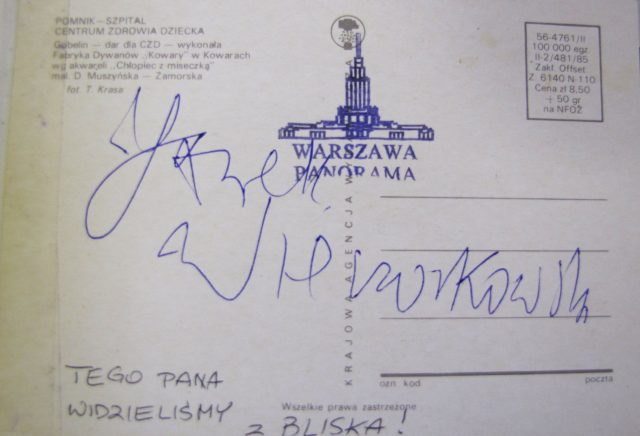 POMNIK – SZPITAL
CENTRUM ZDROWIA DZIECKA
Gobelin — dar dla CZD — wykonała
Fabryka Dywanów „Kowary" w Kowarach
wg akwareli „Chłopiec z miseczką"
mal. D. Muszyńska – Zamorska
fot. T. Krasa
56-4761/II
100 000 egz
II-2/481/85
Zakł. Offset
Z. 6140 N-110
Cena zł 8,50
+ 50 gr
na NFOZ
WARSZAWA
PANORAMA
KRAJOWA AGENCJA
ozn. kod
poczta
Wszelkie prawa zastrzeżone
TEGO PANA
WIDZIELIŚMY
Z BLISKA!